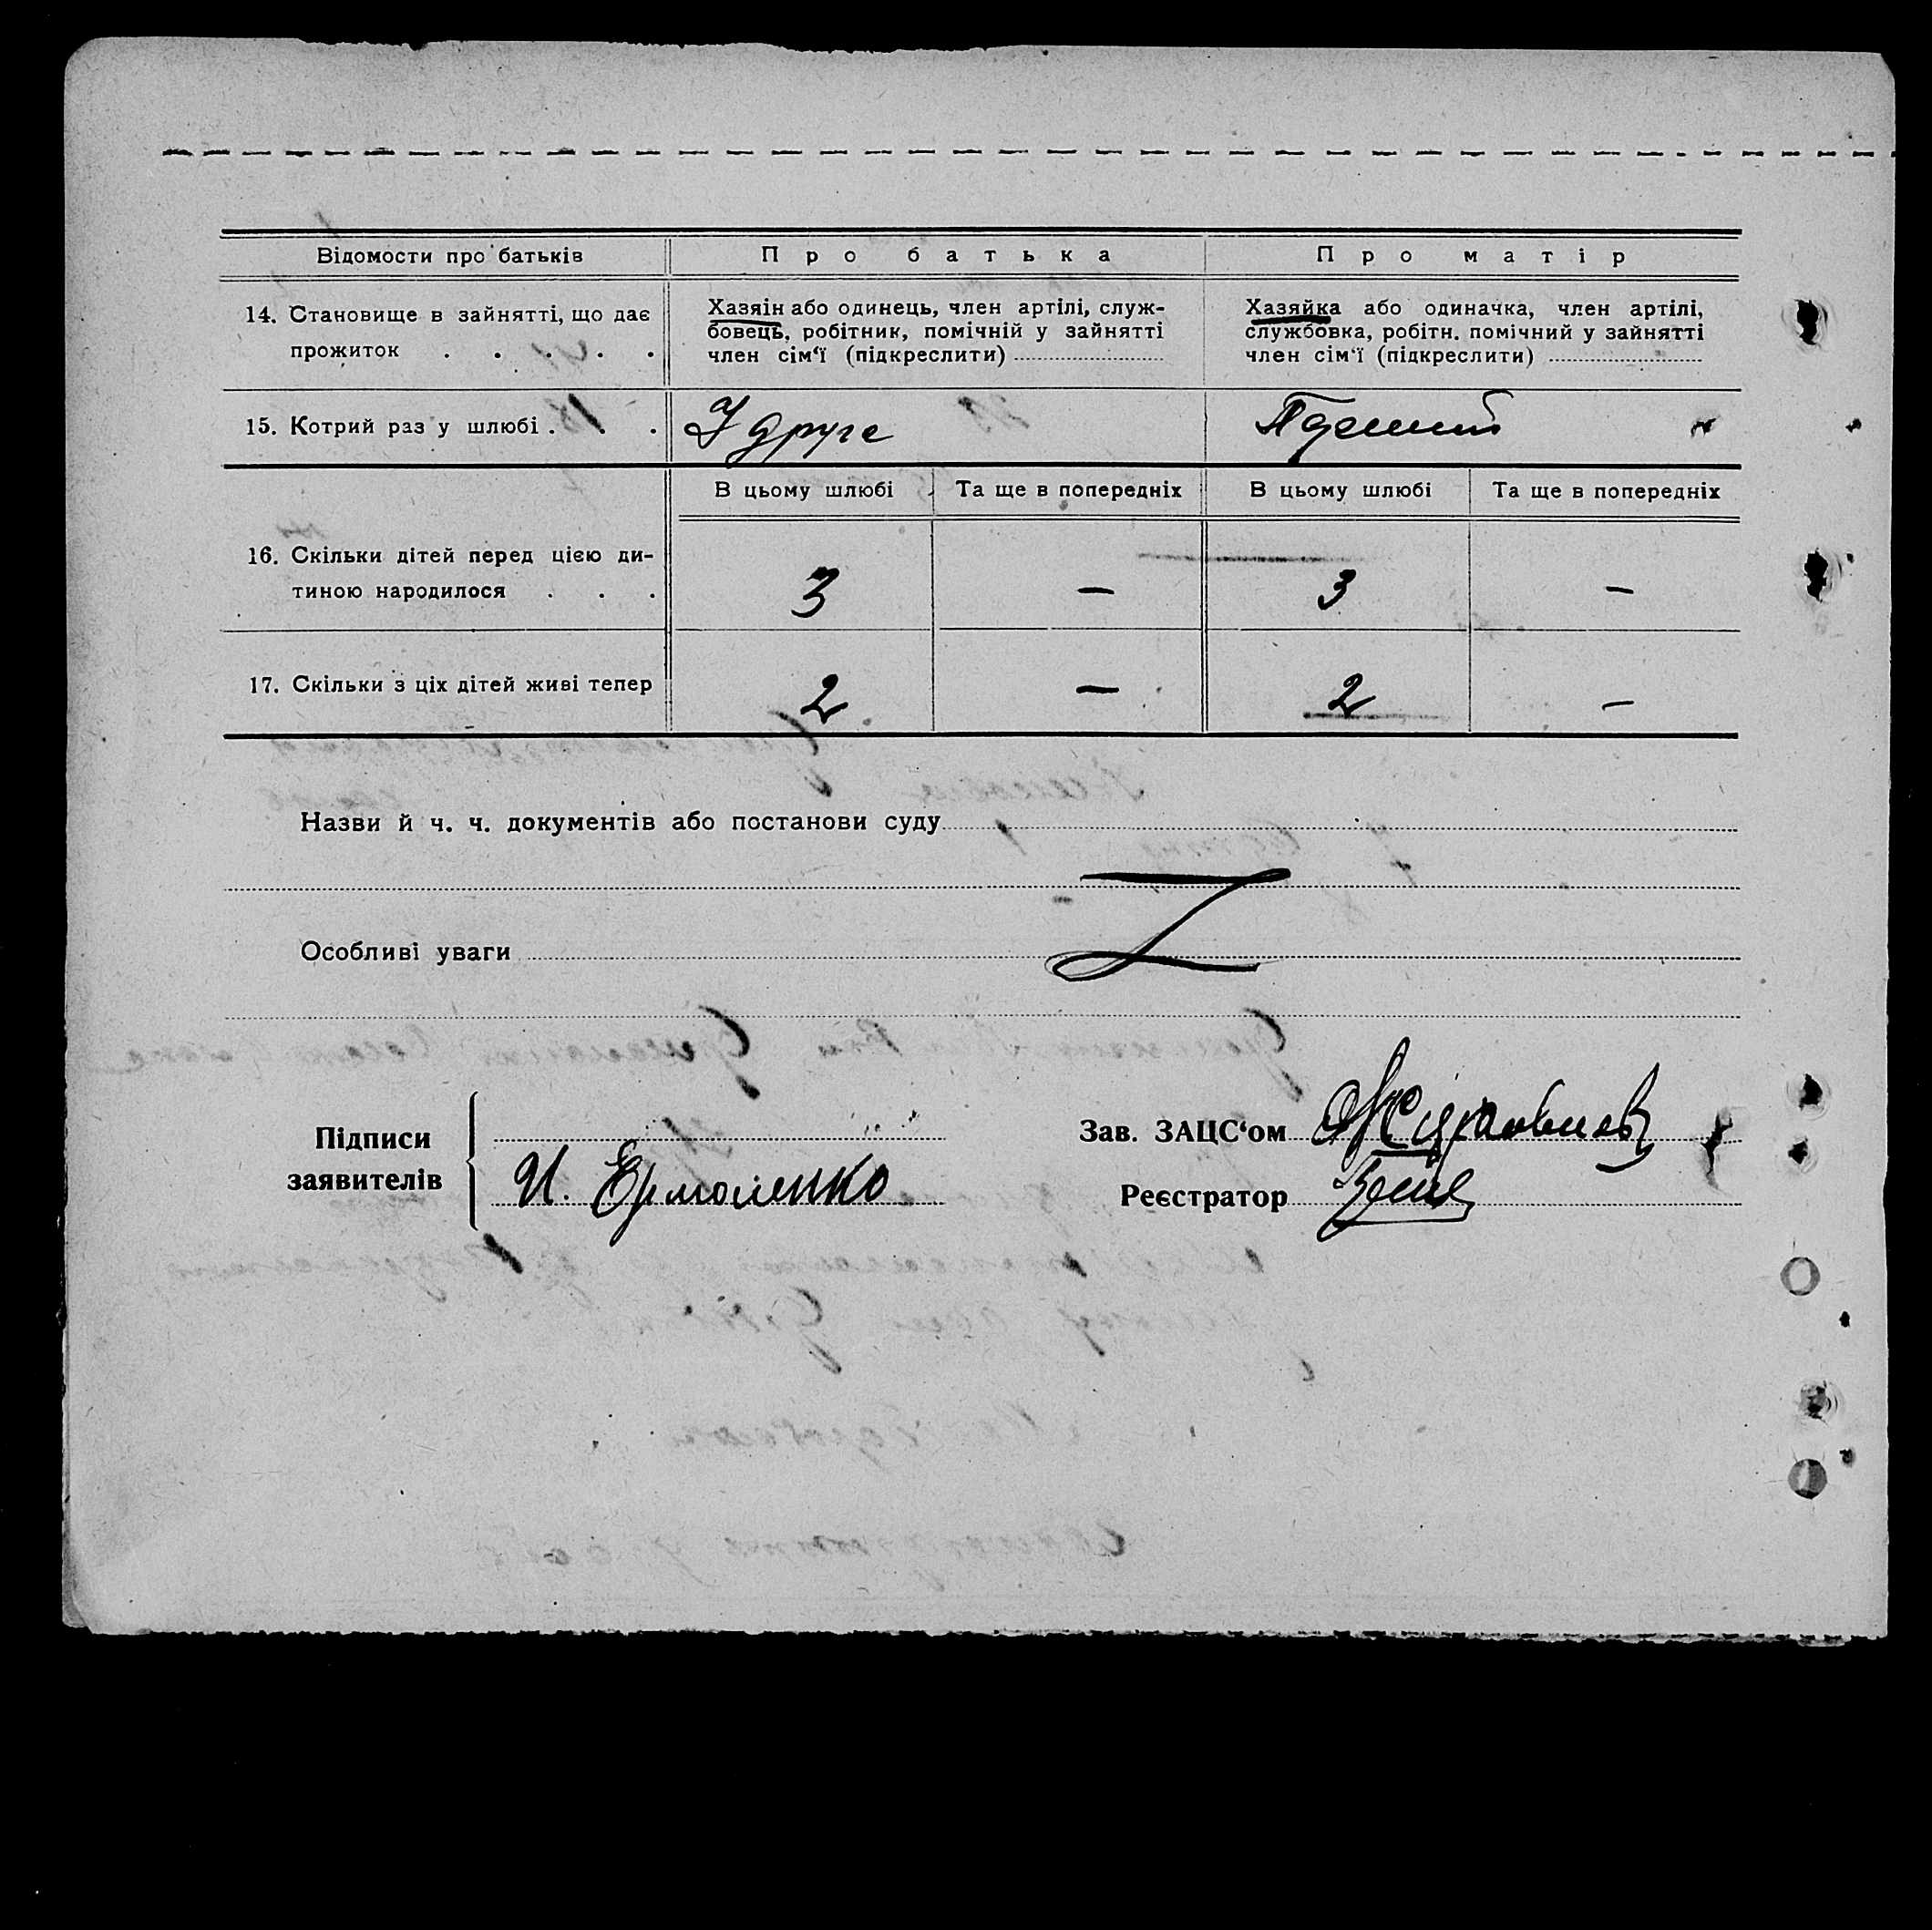 Відомости про батьків
Про батька
Про матір
14. Становище в зайнятті, що дає
прожиток . . . . .
Хазяін або одинець, член артілі, служ-
бовець, робітник, помічній у зайнятті
член сім‘ї (підкреслити)
Хазяйка або одиначка, член артілі,
службовка, робітн. помічний у зайнятті
член сім‘ї (підкреслити)
15. Котрий раз у шлюбі . . .
У друге
В цьому шлюбі
Та ще в попередніх
В цьому шлюбі
Та ще в попередніх
16. Скільки дітей перед цією ди-
тиною народилося . . .
3
—
3
—
17. Скільки з ціх дітей живі тепер
2
—
2
—
Назви й ч. ч. документів або постанови суду
Особливі уваги
Підписи
заявителів
И. Ермоленко
Зав. ЗАЦС‘ом
Реєстратор